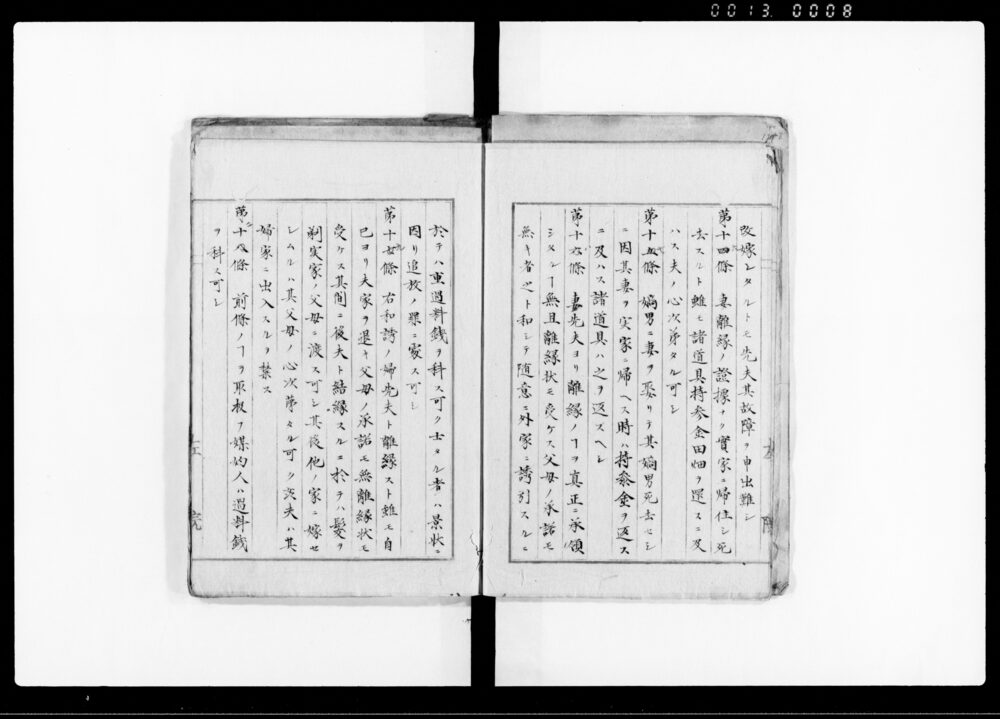 0013 0008
改嫁シタルトモ先夫其故障ヲ申出難シ
第十四條 妻離縁ノ證據ナク實家ニ帰住シ死
去スルト雖モ諸道具持参金田畑ヲ還スニ及
ハス夫ノ心次第タル可シ
第十五條 嫡男ニ妻ヲ娶リテ其嫡男死去セシ
ニ因其妻ヲ実家ニ帰ヘス時ハ持参金ヲ返ス
ニ及ハス諸道具ハ之ヲ返スヘシ
第十六條 妻先夫ヨリ離縁ノヿヲ真正ニ承領
シタルヿ無且離縁状モ受ケス父母ノ承諾モ
無キ者之ト和シテ随意ニ外家ニ誘引スルニ
於テハ重過料銭ヲ科ス可ク士タル者ハ景状ニ
因リ追放ノ罪ニ處ス可シ
第十七條 右和誘ノ婦先夫ト離縁スト雖モ自
已ヨリ夫家ヲ退キ父母ノ承諾モ無離縁状モ
受ケス其間ニ後夫ト結縁スルニ於テハ髪ヲ
剃実家ノ父母ニ渡ス可シ其後他ノ家ニ嫁セ
シムルハ其父母ノ心次第タル可ク次夫ハ其
婦家ニ出入スルヲ禁ス
第十八條 前條ノヿヲ取扱フ媒妁人ハ過料銭
ヲ科ス可シ
左院